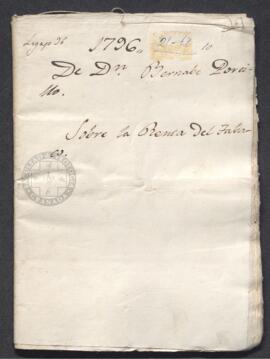 Legajo 36 1796,, 10
De Dn Bernabe Porci-
llo.
Sobre la Renta del Taba-
co.